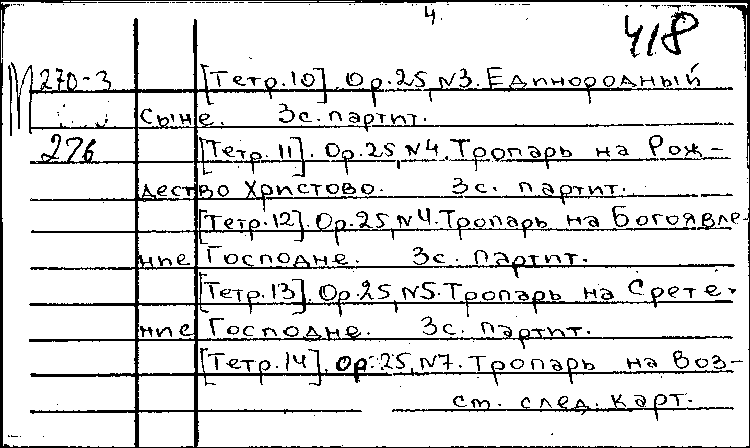 4
418
М 270-3 [Тетр.10]. Ор.25, №3. Единородный
Сыне. 3с. партит.
276 [Тетр. 11]. Ор.25, №4. Тропарь на Рож-
дество Христово. 3с. партит.
[Тетр.12]. Ор.25, №4. Тропарь на Богоявле-
ние Господне. 3с. партит.
[Тетр.13]. Ор.25, №5. Тропарь на Срете-
ние Господне. 3с. партит.
[Тетр.14]. Ор.25, №7. Тропарь на Воз-
см. след. карт.